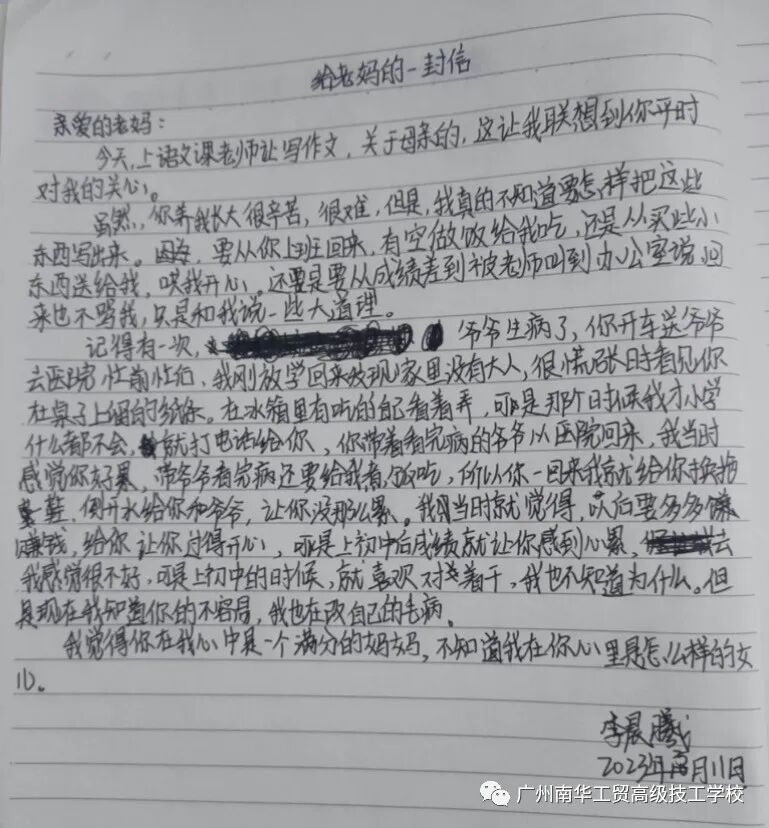 给老妈的一封信
亲爱的老妈：
今天，上语文课老师让写作文，关于母亲的，这让我联想到你平时
对我的关心。
虽然，你养我长大很辛苦，很难，但是，我真的不知道要怎样把这些
东西写出来。因为，要从你上班回来，有空做饭给我吃，还是从买些小
东西送给我，哄我开心。还要是要从成绩差到被老师叫到办公室说，回
来也不骂我，只是和我说一些大道理。
记得有一次，爷爷生病了，你开车送爷爷
去医院忙前忙后，我刚放学回来发现家里没有大人，很慌张时看见你
在桌子上留的纸条。在冰箱里有吃的自己看着弄，可是那个时候我才小学
什么都不会，就打电话给你，你带着看完病的爷爷从医院回来，我当时
感觉你好累，带爷爷看完病还要给我煮饭吃，所以你一回来我就给你换拖
鞋，倒开水给你和爷爷，让你没那么累。我当时就觉得，以后要多多
赚钱，给你让你过得开心，可是上初中后成绩就让你感到心累，去
我感觉很不好，可是上初中的时候，就喜欢对着干，我也不知道为什么。但
是现在我知道你的不容易，我也在改自己的毛病。
我觉得你在我心中是一个满分的妈妈，不知道我在你心里是怎么样的女
儿。
李晨曦
2023年月11日
广州南华工贸高级技工学校